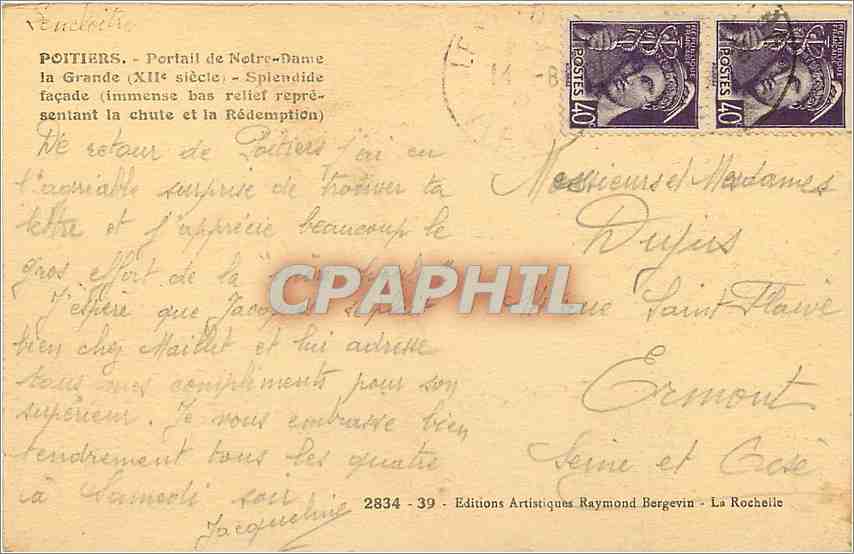 Lencloître
POITIERS. - Portail de Notre-Dame
la Grande (XIIe siècle) - Splendide
façade (immense bas relief repré-
sentant la chute et la Rédemption)
De retour de Poitiers j'ai eu
l'agréable surprise de trouver ta
lettre et j'apprécie beaucoup le
gros effort de la
J'espère que Jacques se plait
bien chez Maillet et lui adresse
tous mes compliments pour son
supérieur. Je vous embrasse bien
tendrement tous les quatre
à Samedi soir
Jacqueline
REPUBLIQUE FRANÇAISE
POSTES
40c
REPUBLIQUE FRANÇAISE
POSTES
40c
14 -8
Messieurs et Mesdames
Dujus
Saint Flaive
Ermont
Seine et Oise
CPAPHIL
2834 - 39 - Editions Artistiques Raymond Bergevin - La Rochelle